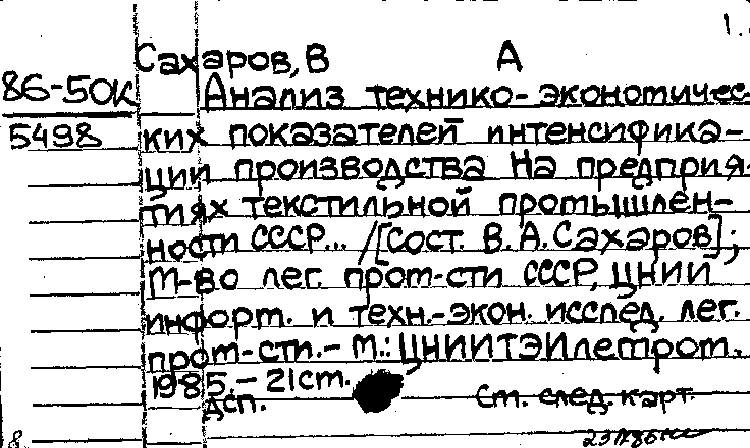 1.
Сахаров, В А
86-50к Анализ технико-экономичес-
5498 ких показателей интенсифика-
ции производства на предприя-
тиях текстильной промышлен-
ности СССР... /[Сост. В. А. Сахаров];
М-во лег. пром-сти СССР, ЦНИИ
информ. и техн.-экон. исслед. лег.
пром-сти. - М.: ЦНИИТЭИлегпром.
1985. - 21 см.
дсп. См. след. карт.
8.